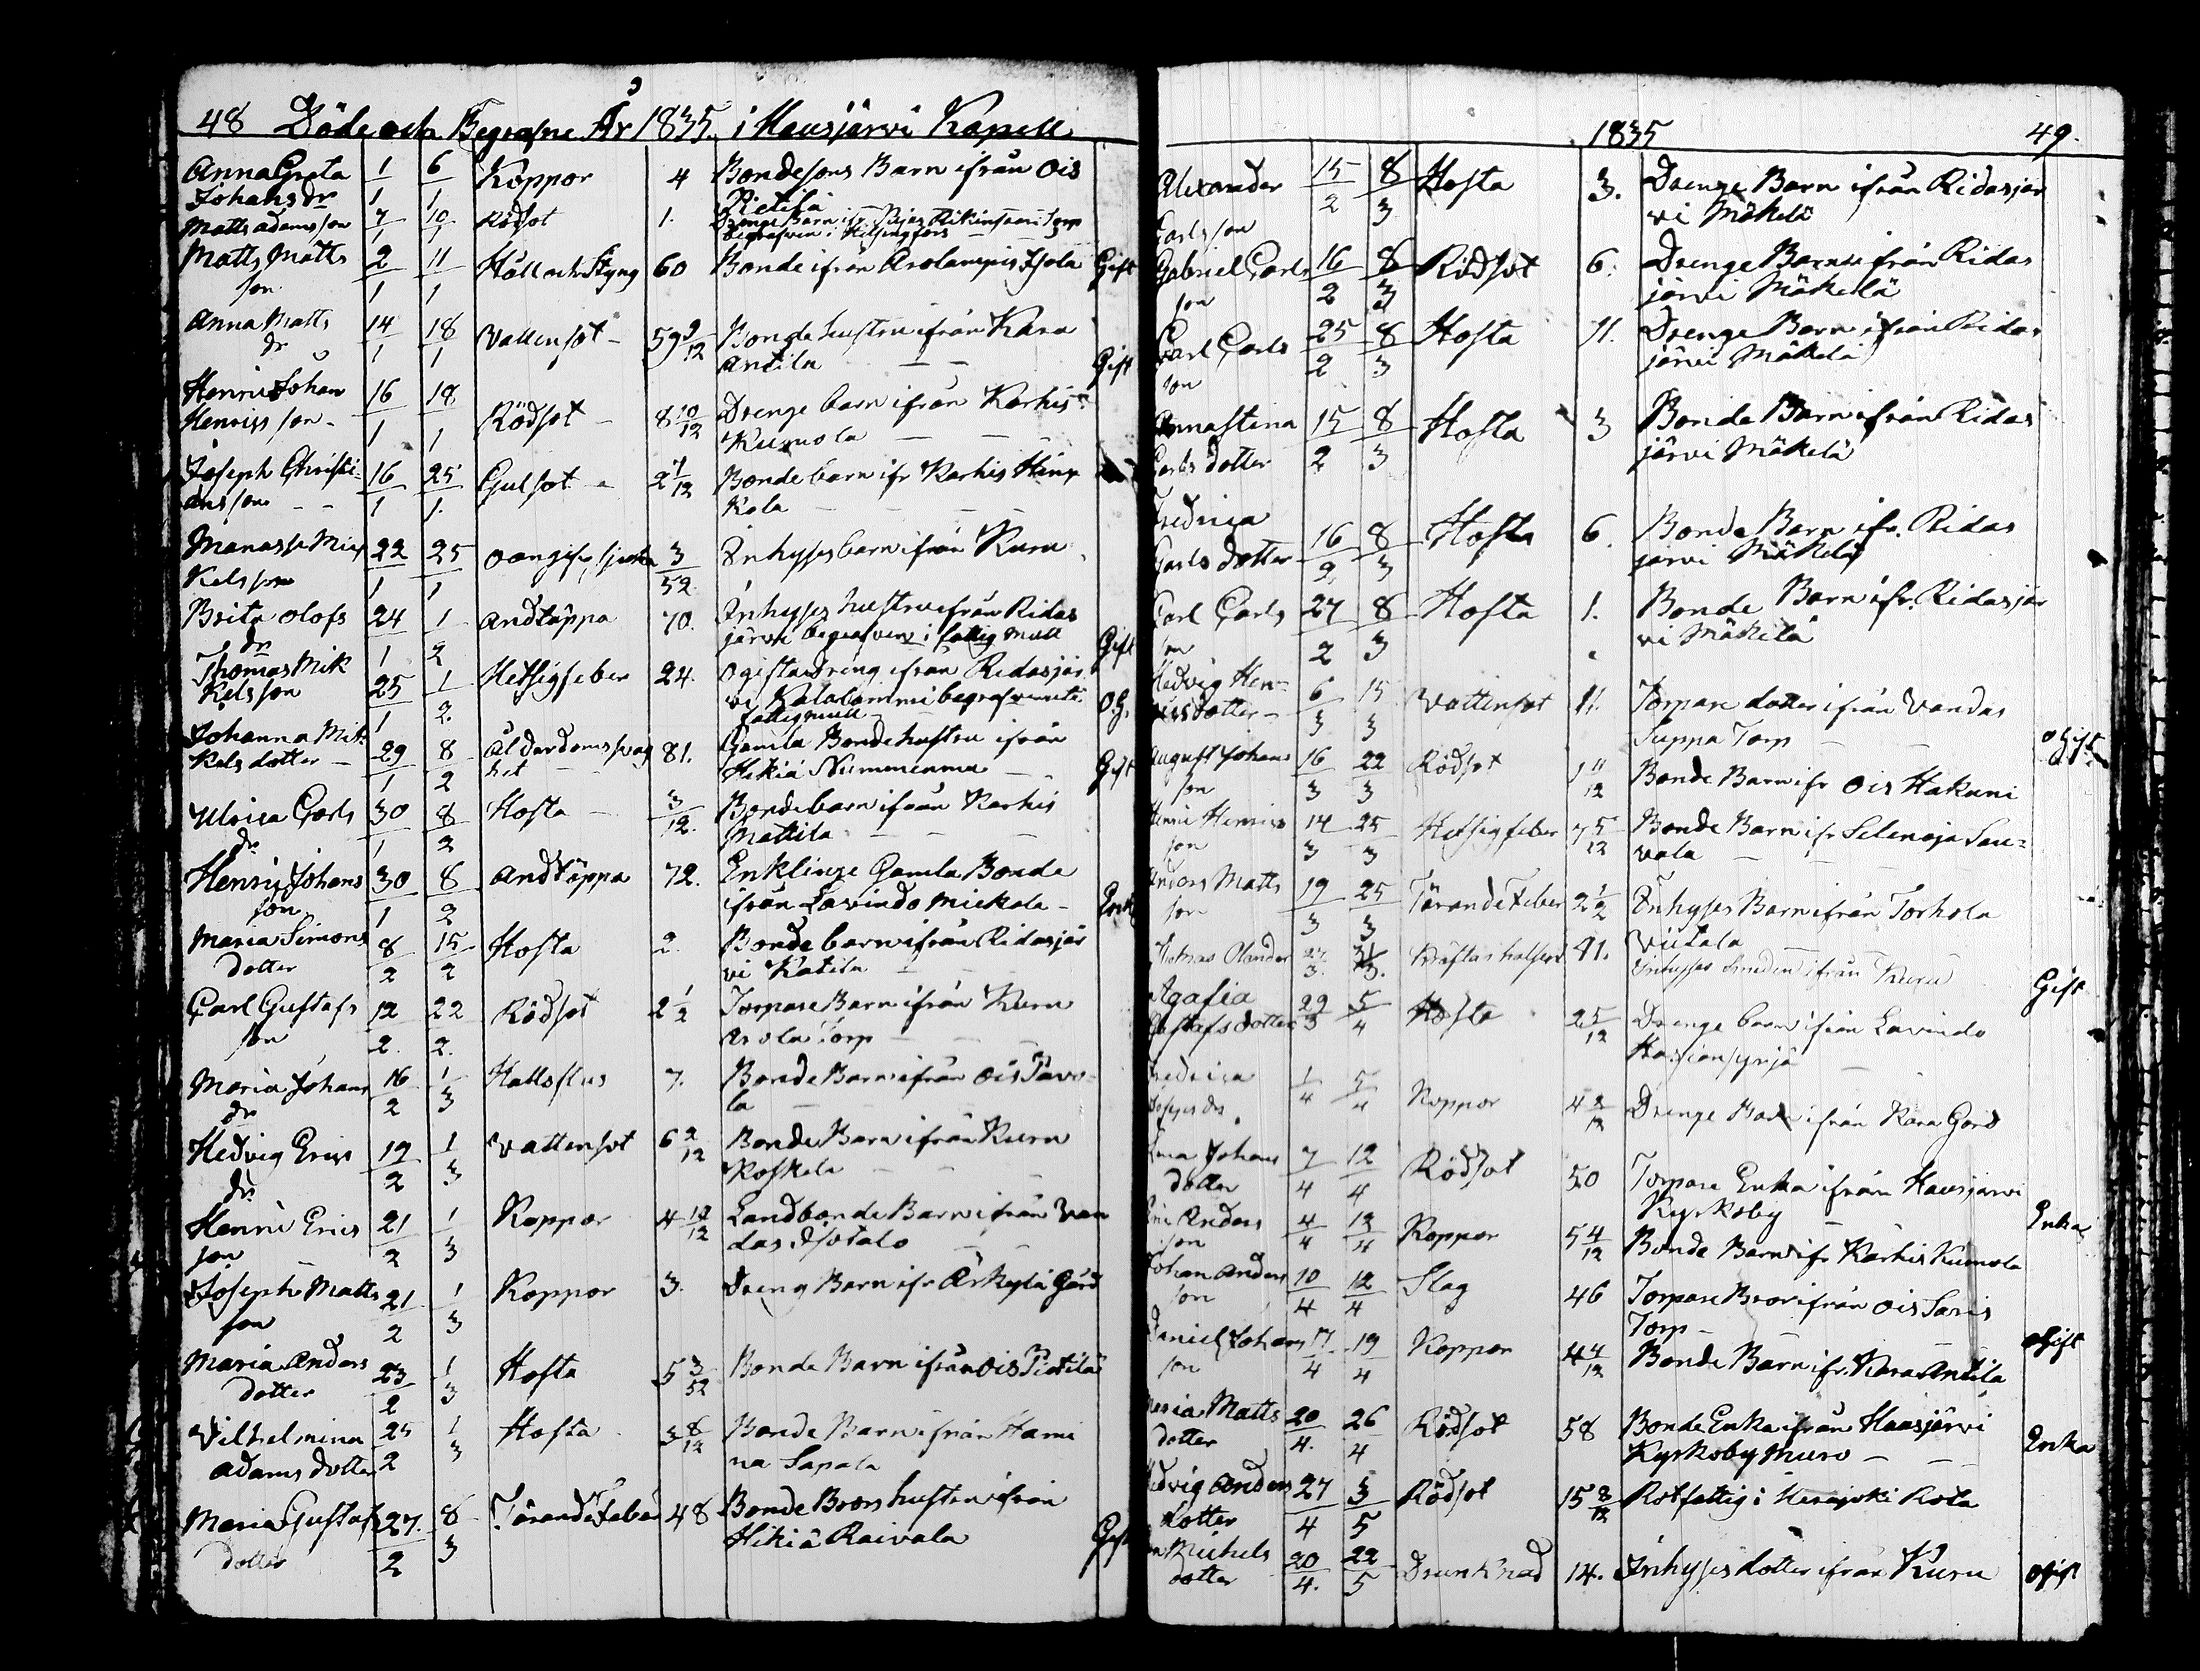 48 Döde och Begrafne År 1835. i Hausjärvi Kapell
Anna Greta 1/1 6/1 Koppor 4 Bondesons Barn ifrån Ois
Johans dr Pietilä
Matts Adamsson 7/1 10/1 Rödsot 1. Drenge Barn ifr
begrafven i Helsingfors
Matts Matts 2/1 11/1 Håll och Styng 60 Bonde ifrån Arolampis Gift
son
Anna Matts 14/1 18/1 Vattensot 59 9/12 Bonde hustru ifrån Kara
dr Antila Gift
Henric Johan 16/1 18/1 Rödsot 8 10/12 Drenge barn ifrån Karhis
Henrics son Kumola
Joseph Christi- 16/1 25/1 Gulsot 2 1/12 Bonde barn ifr Karhis
ans son kola
Manasse Mic 22/1 25/1 3/52 Inhyses barn ifrån Kuru
kels son
Brita Olofs 24/1 1/2 Andtäppa 70. Inhyses hustru ifrån Ridas
dr järvi begrafven i fattig mull Gift
Thomas Mik 25/1 1/2. Hetsig feber 24. Ogift dreng ifrån Ridasjär
kels son vi begrafven uti O.G.
fattig mull
Johanna Mik 29/1 8/2 Ålderdoms svag 81. Gamla Bonde hustru ifrån
kels dotter het Hikiä Nummenmaa Gift
Ulrica Carls 30/1 8/2 Hosta 3/12. Bonde barn ifrån Karhis
dr Mattila
Henric Johans 30/1 8/2 Andtäppa 72. Enklinge Gamla Bonde
son ifrån Lavindo Mickola Enk
Maria Simons 8/2 15/2 Hosta 2. Bonde barn ifrån Ridasjär
dotter vi Katila
Carl Gustafs 12/2. 22/2. Rödsot 2 1/2 Torpare Barn ifrån Kuru
son Arola Torp
Maria Johans 16/2 1/3 7. Bonde Barn ifrån Ois Pavo-
dr la
Hedvig Erics 19/2 1/3 Vattensot 6 2/12 Bonde Barn ifrån Kuru
dr Koskela
Henric Erics 21/2 1/3 Koppor 4 10/12 Landbonde Barn ifrån Van
son das Isotalo
Joseph Matts 21/2 1/3 Koppor 3. Dreng Barn ifr Erkylä Gård
son
Maria Anders 23/2 1/3 Hosta 5 3/52 Bonde Barn ifrån Ois Pietilä
dotter
Vilhelmina 25/2 1/3 Hosta 3 8/12 Bonde Barn ifrån Hami
Adams dotter na Sapala
Maria Gustafs 27./2 8/3 Tärande Feber 48 Bonde Brors hustru ifrån
dotter Hikiä Raivala Gift
1835 49.
Alexander 15/2 8/3 Hosta 3. Drenge Barn ifrån Ridasjär
Carls son vi Mäkelä
Gabriel Carls 16/2 8/3 Rödsot 6. Drenge Barn ifrån Ridas
son järvi Mäkelä
Carl Carls 25/2 8/3 Hosta 11. Drenge Barn ifrån Ridas
son järvi Mäkelä
Annastina 15/2 8/3 Hosta 3 Bonde Barn ifrån Ridas
Carls dotter järvi Mäkelä
Fredrica
Carls dotter 16/2 8/3 Hosta 6. Bonde Barn ifr. Ridas
järvi Mäkelä
Carl Carls 27/2 8/3 Hosta 1. Bonde Barn ifr. Ridasjär
son vi Mäkelä
Hedvig Hen- 6/3 15/3 Vattensot 11. Torpare dotter ifrån Vandas
rics dotter Suppa Torp Ogift
August Johans 16/3 22/3 Rödsot 1 11/12 Bonde Barn ifr Ois Hakuni
son
Henric Henrics 14/3 25/3 Hetsig feber 7 5/12 Bonde Barn ifr Selenoja Sau-
son vala
Anders Matts 19/3 25/3 Tärande Feber 2 1/2 Inhyses Barn ifrån Torhola
son Viitala
27/3. 31/3. 41. Inhyses ifrån Kuru Gift
Agafia 22/3 5/4 Hosta 2 5/12 Drenge barn ifrån Lavindo
Gustafs dotter
Fredrica 1/4 5/4 Koppor 4 2/12 Drenge Barn ifrån Kara Gård
Josephs dr
Johans 7/4 12/4 Rödsot 50 Torpare Enka ifrån Hausjärvi
dotter Kyrkoby Enka
Anders 4/4 12/4 Koppor 5 4/12 Bonde Barn ifr Karhis Kumola
son
Johan Anders 10/4 12/4 Slag 46 Torpare Bror ifrån Ois Saris
son Torp Ogift
Daniel Johans 17/4 19/4 Koppor 4 4/12 Bonde Barn ifr. Kara Antila
son
Maria Matts 20/4. 26/4 Rödsot 58 Bonde Enka ifrån Hausjärvi
dotter Kyrkoby Muro Enka
Hedvig Anders 27/4 3/5 Rödsot 15 8/12 Rotfattig i Rota
dotter
Michels 20/4. 22/5 Drunknad 14. Inhyses dotter ifrån Kuru Ogift
dotter